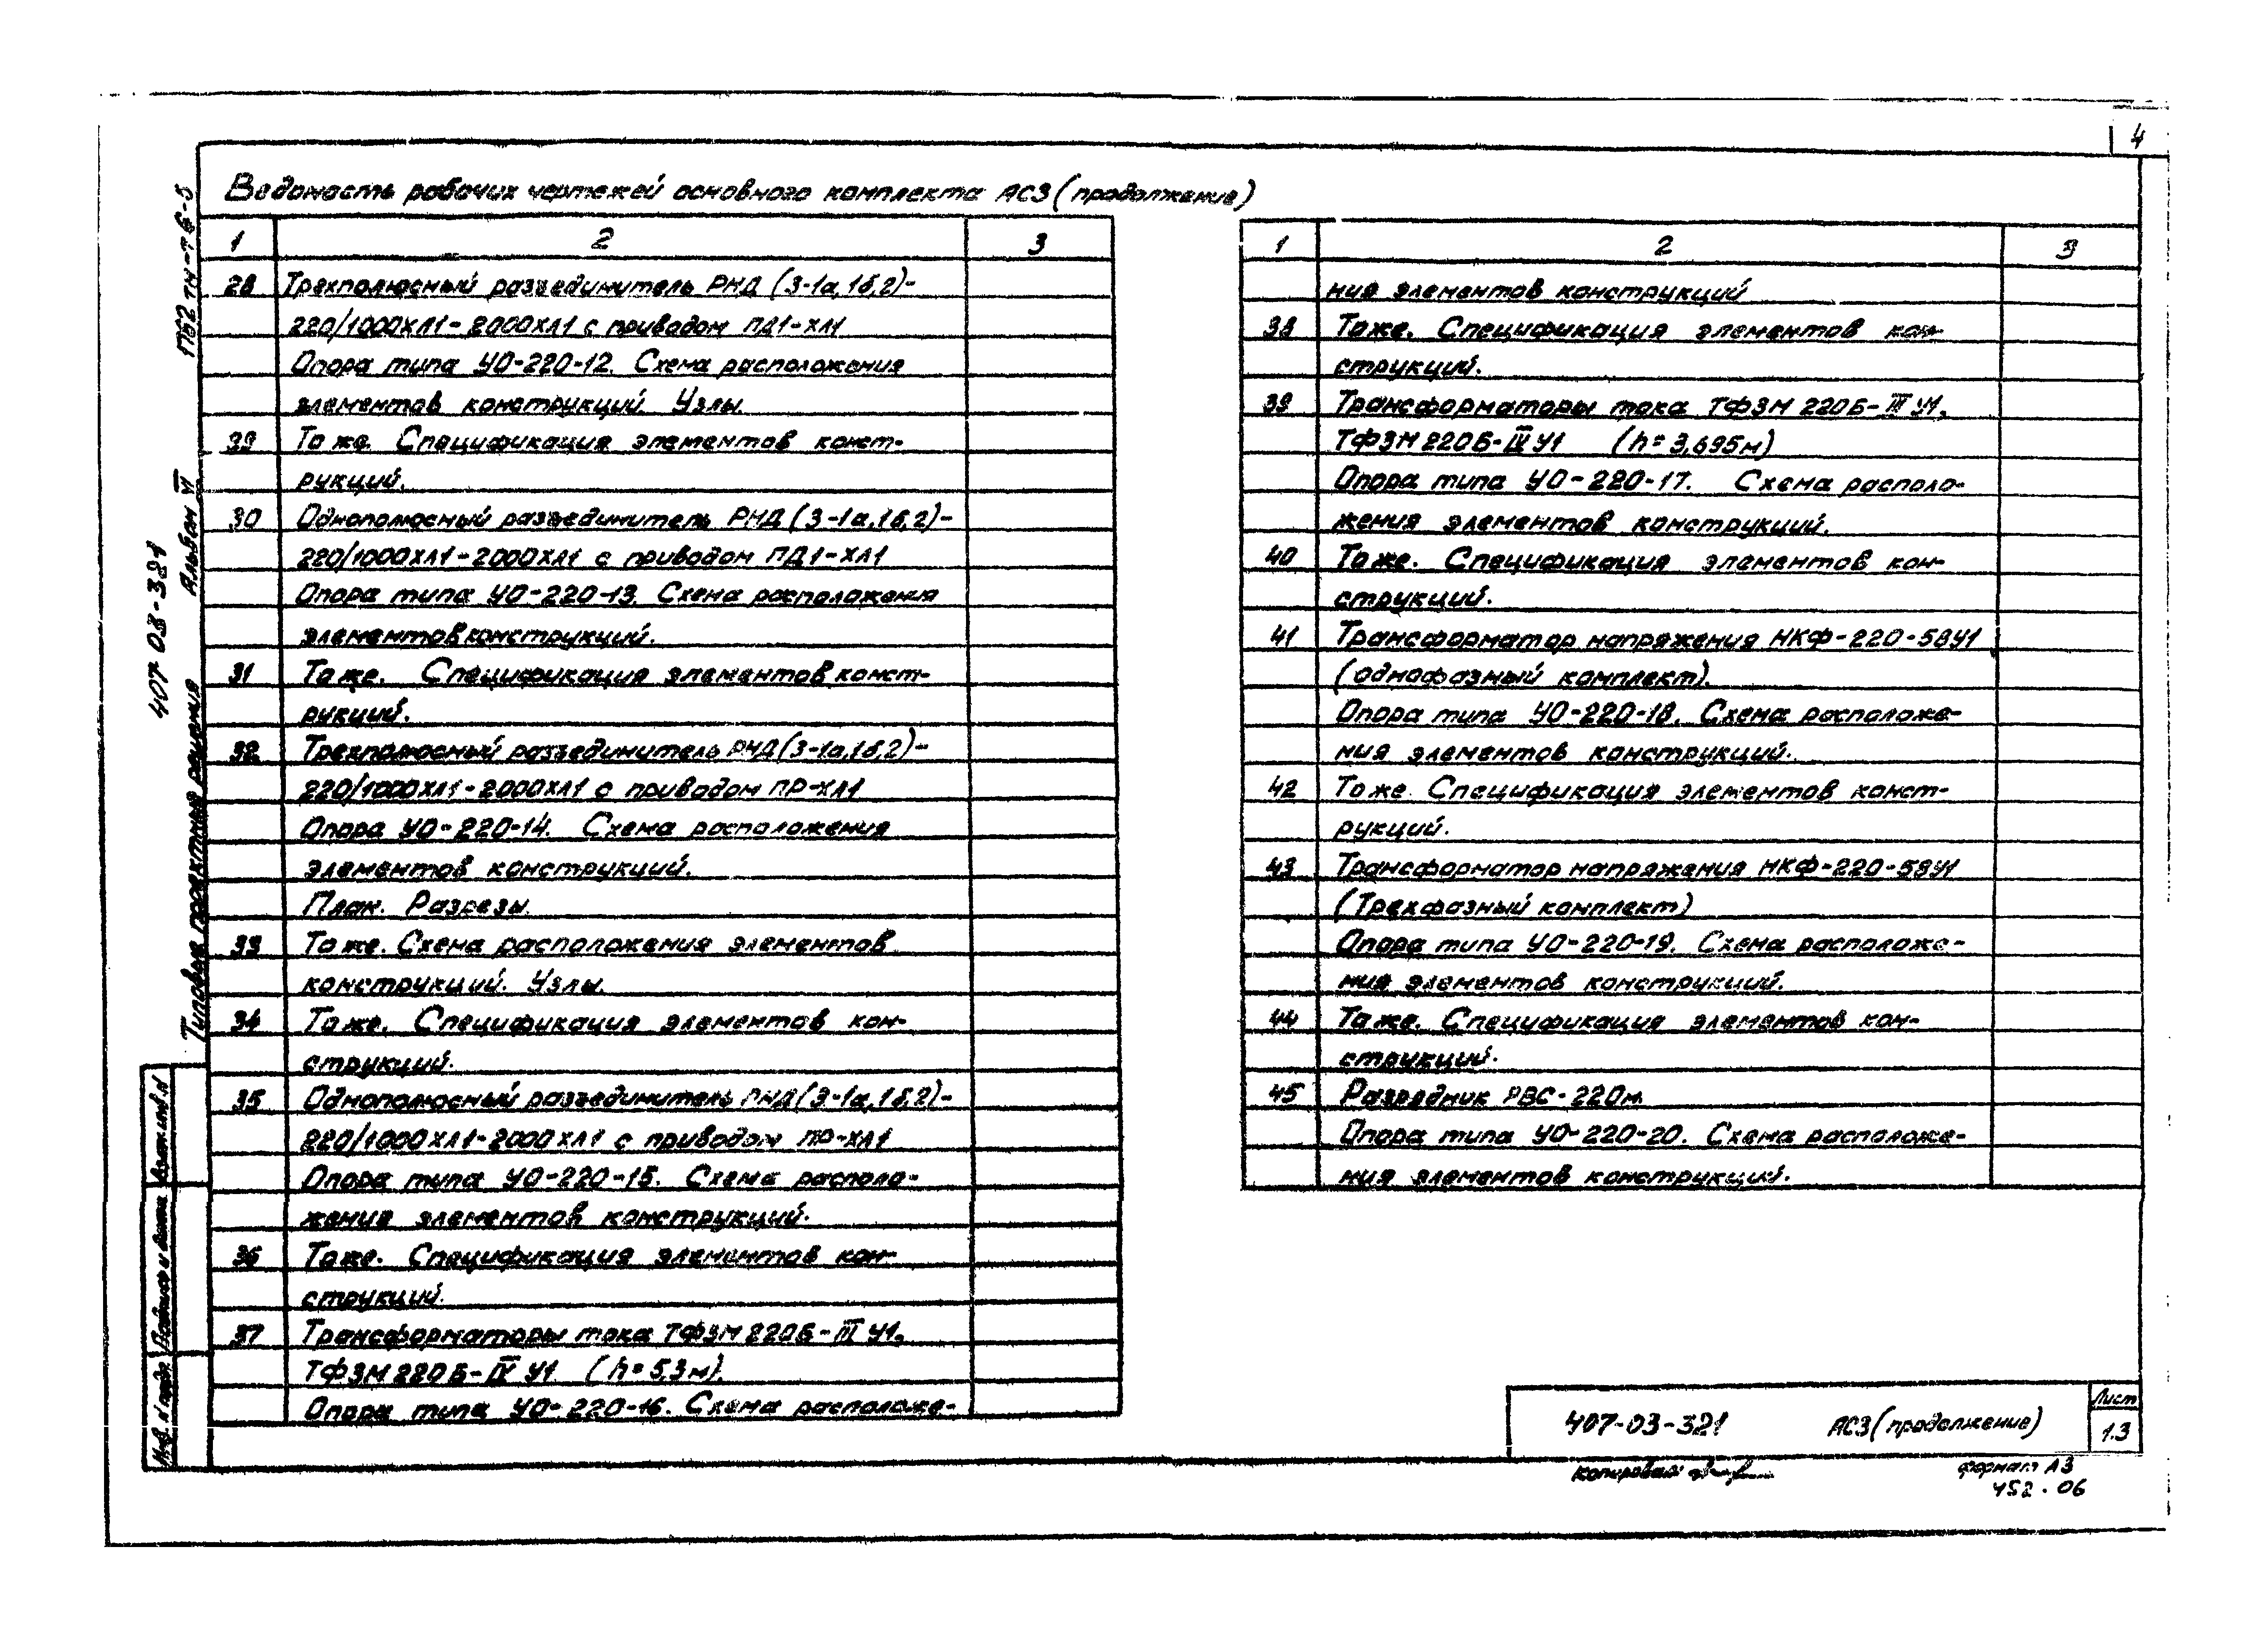 4
Ведомость рабочих чертежей основного комплекта АС3 (продолжение)
1 2 3
28 Трехполюсный разъединитель РНД (3-1а,1б,2)-
220/1000ХЛ1-2000ХЛ1 с приводом ПД1-ХЛ1
Опора типа УО-220-12. Схема расположения
элементов конструкций Узлы
39 То же. Спецификация элементов конст-
рукций.
30 Однополюсный разъединитель РНД (3-1а,1б,2)-
220/1000ХЛ1-2000ХЛ1 с приводом ПД1-ХЛ1
Опора типа УО-220-13. Схема расположения
элементов конструкций.
31 То же. Спецификация элементов конст-
рукций.
32 Трехполюсный разъединитель РНД (3-1а,1б,2)-
220/1000ХЛ1-2000ХЛ1 с приводом ПР-ХЛ1
Опора УО-220-14. Схема расположения
элементов конструкций.
План. Разрезы.
33 То же. Схема расположения элементов
конструкций. Узлы.
34 То же. Спецификация элементов кон-
струкций.
35 Однополюсный разъединитель РНД (3-1а,1б,2)-
220/1000ХЛ1-2000ХЛ1 с приводом ПР-ХЛ1
Опора типа УО-220-15. Схема располо-
жения элементов конструкций.
36 То же. Спецификация элементов кон-
струкций.
37 Трансформаторы тока ТФЗМ 220Б-III У1,
ТФЗМ 220Б-IV У1 (h=5,3м).
Опора типа УО-220-16. Схема расположе-
1 2 3
ния элементов конструкций
38 То же. Спецификация элементов кон-
струкций.
39 Трансформаторы тока ТФЗМ 220Б-III У1,
ТФЗМ 220Б-IV У1 (h=3,695м)
Опора типа УО-220-17. Схема располо-
жения элементов конструкций.
40 То же. Спецификация элементов кон-
струкций.
41 Трансформатор напряжения НКФ-220-58У1
(однофазный комплект).
Опора типа УО-220-18. Схема расположе-
ния элементов конструкций.
42 То же. Спецификация элементов конст-
рукций.
43 Трансформатор напряжения НКФ-220-58У1
(Трехфазный комплект)
Опора типа УО-220-19. Схема расположе-
ния элементов конструкций.
44 То же. Спецификация элементов кон-
струкций.
45 Разрядник РВС-220м
Опора типа УО-220-20. Схема расположе-
ния элементов конструкций.
Типовые проектные решения
407-03-321
Альбом VI
Взам.инв.N
Подпись и дата
Инв. N подл.
407-03-321 АС3 (продолжение)
Лист
1.3
Копировал
формат А3
452.06